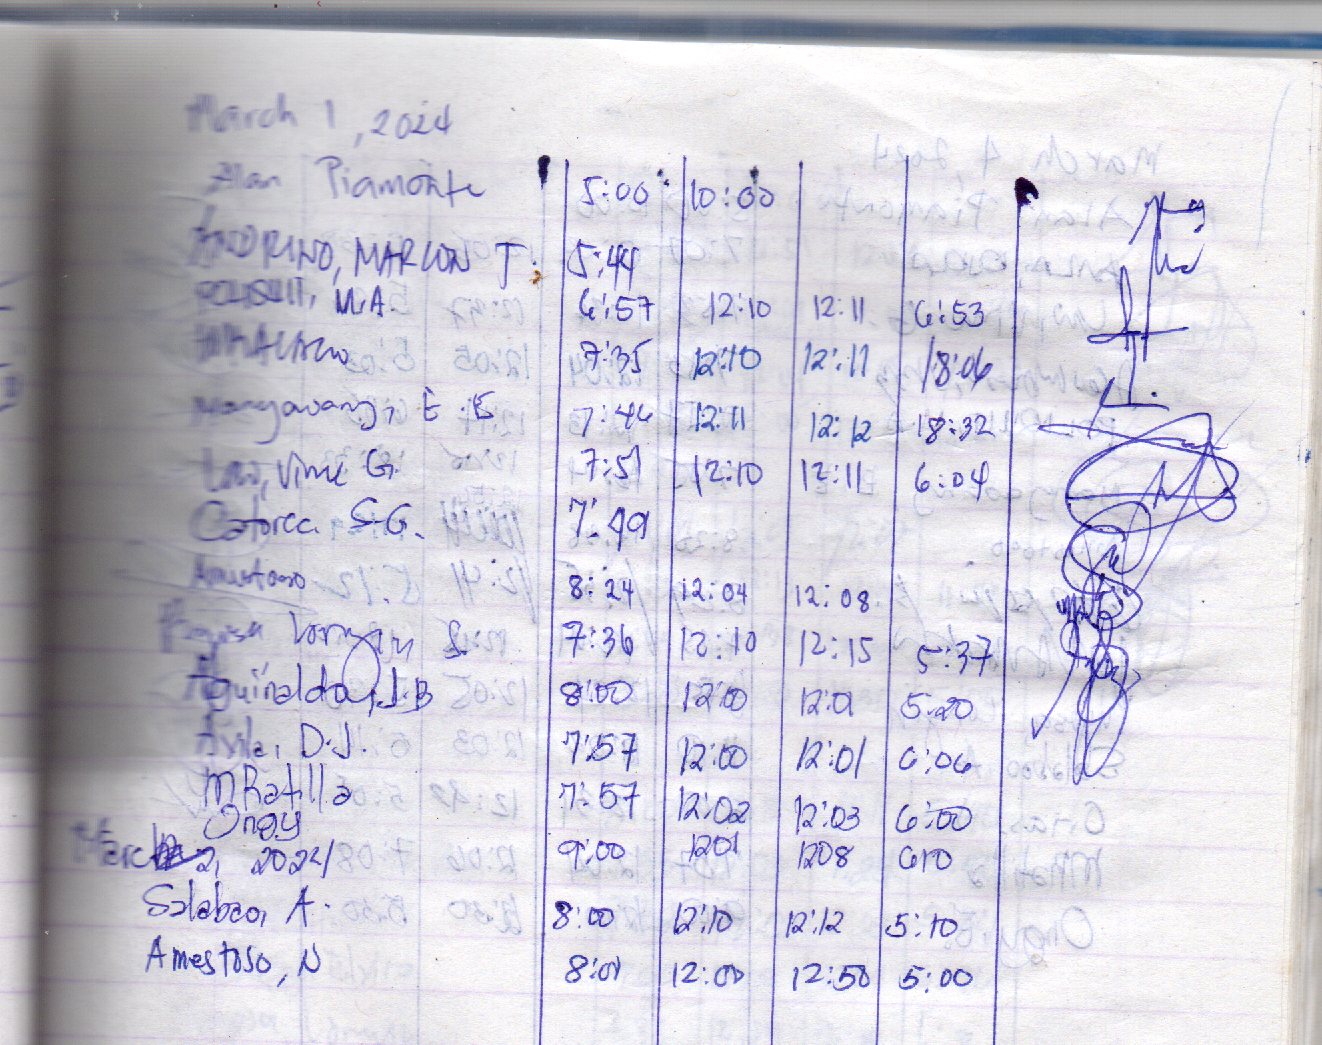 March 1, 2024
Alan Piamonte 5:00 10:00
ANDRINO, MARLON J. 5:44
M.A. 6:57 12:10 12:11 6:53
7:35 12:10 12:11 18:06
E. 7:44 12:11 12:12 18:32
G. 7:51 12:10 12:11 6:04
Catorce. S.G. 7:49
Amestoso 8:24 12:04 12:08
7:36 12:10 12:15 5:37
Aguinaldo, J.B 8:00 12:00 12:01 5:20
Avila, D.J. 7:57 12:00 12:01 6:06
MRatilla 7:57 12:02 12:03 6:00
Ongy 9:00 1201 1208 610
March 2, 2024
Salabao, A. 8:00 12:10 12:12 5:10
Amestoso, N 8:01 12:00 12:50 5:00